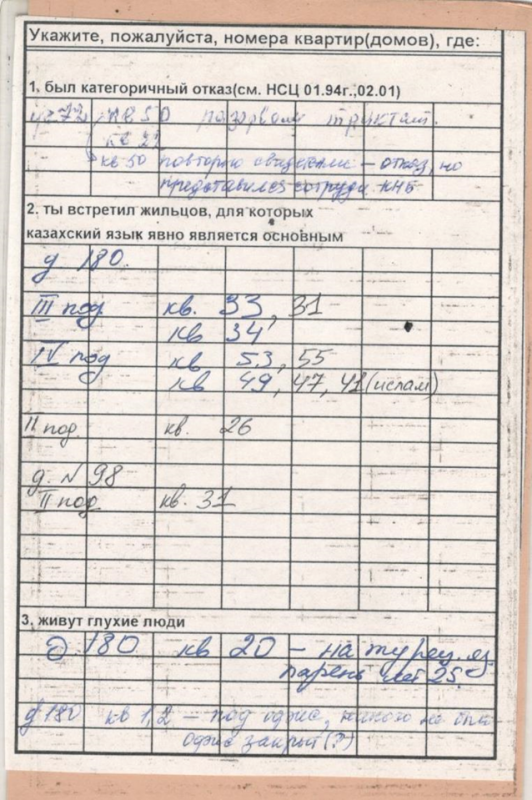 Укажите, пожалуйста, номера квартир(домов), где:
1, был категоричный отказ(см. НСЦ 01.94г.,02.01)
кв 50 разорвали трактат.
кв 22
кв 50 повторно свидетели – отказ, но
представился сотрудн. КНБ
2. ты встретил жильцов, для которых
казахский язык явно является основным
д 180.
III под кв. 33, 31
кв 34
IV под кв 53, 55
кв 49, 47, 41 (ислам)
II под. кв. 26
д. N 98
II под кв. 31
3. живут глухие люди
д. 180 кв 20 – на турец. яз
парень лет 25.
д 180 кв 1,2 – под офис, никого не было
офис закрыт (?)